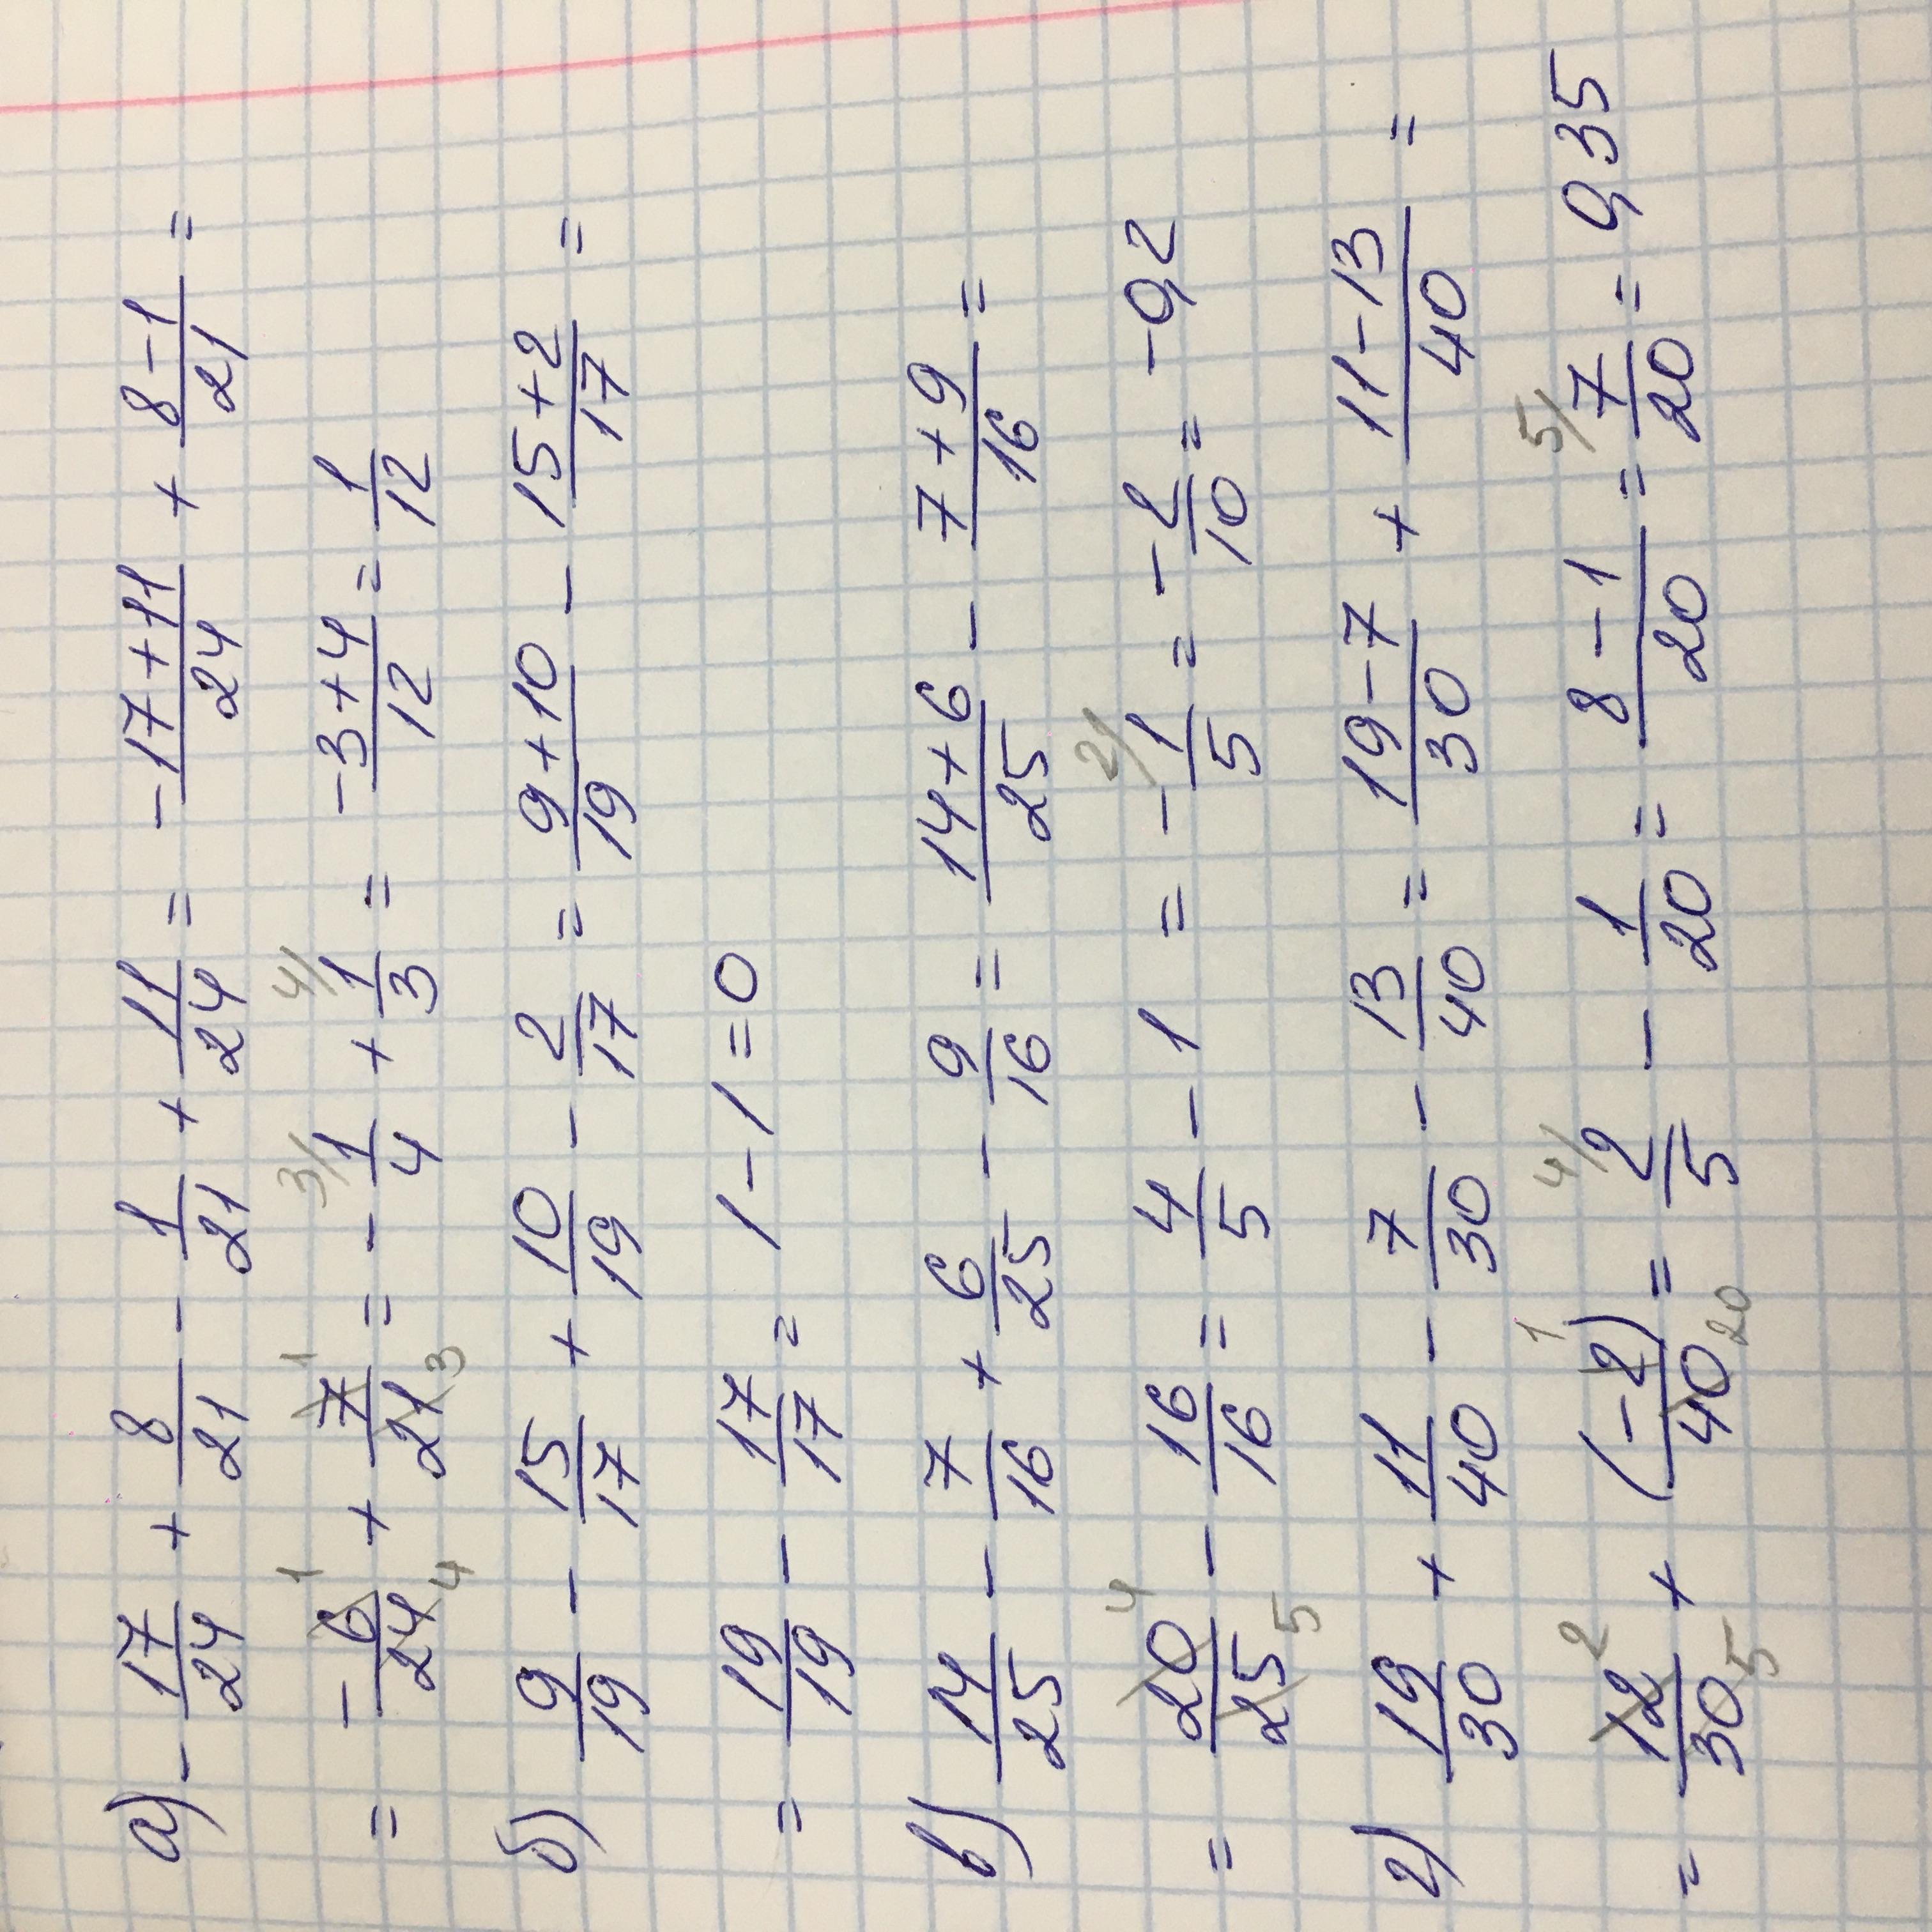 а) - 17/24 + 8/21 - 1/21 + 11/24 = -17+11/24 + 8-1/21 =
= - 6/24 + 7/21 = - 1/4 + 1/3 = -3+4/12 = 1/12
б) 9/19 - 15/17 + 10/19 - 2/17 = 9+10/19 - 15+2/17 =
= 19/19 - 17/17 = 1 - 1 = 0
в) 14/25 - 7/16 + 6/25 - 9/16 = 14+6/25 - 7+9/16 =
= 20/25 - 16/16 = 4/5 - 1 = - 1/5 = - 2/10 = -0,2
г) 19/30 + 11/40 - 7/30 - 13/40 = 19-7/30 + 11-13/40 =
= 12/30 + (-2)/40 = 2/5 - 1/20 = 8-1/20 = 7/20 = 0,35